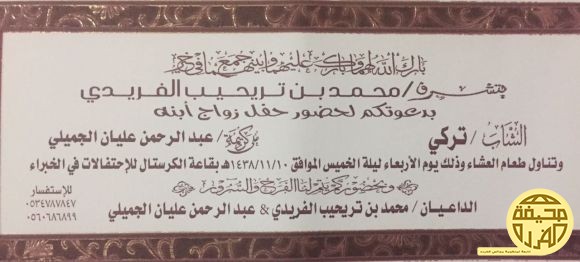 بارك الله لهما وبارك عليهما وجمع بينهما في خير
يتشرف / محمد بن تريحيب الفريدي
بدعوتكم لحضور حفل زواج أبنه
الشاب / تركي
من كريمة / عبد الرحمن عليان الجميلي
وتناول طعام العشاء وذلك يوم الأربعاء ليلة الخميس الموافق ١٤٣٨/١١/١٠هـ بقاعة الكرستال للإحتفالات في الخبراء
وبحضوركم يتم لنا الفرح والسرور
الداعيان / محمد بن تريحيب الفريدي & عبد الرحمن عليان الجميلي
للإستفسار
٠٥٣٤٧٨٧٨٤٧
٠٥٦٠٦٨٦٨٩٩
صحيفة